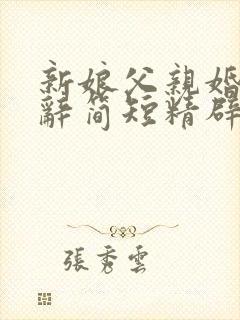 新娘父親婚
辭簡短精辟
張秀雲